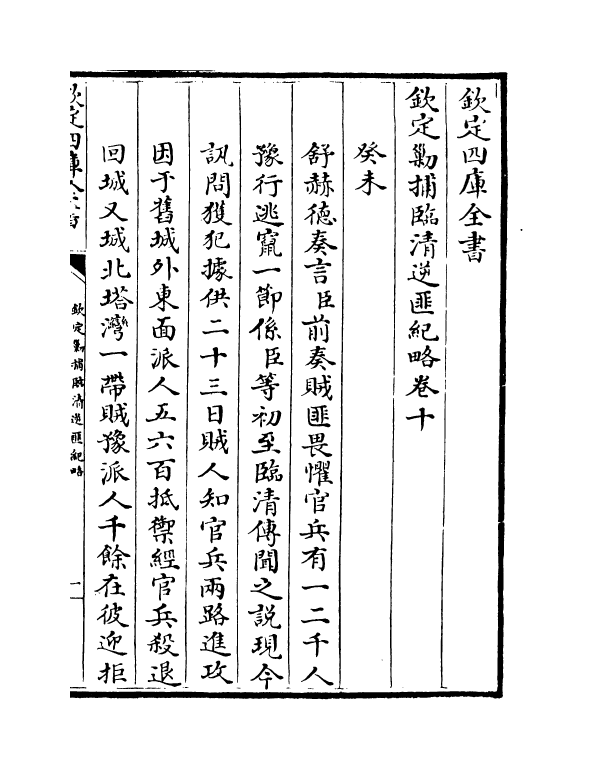 欽定四庫全書
欽定勦捕臨清逆匪紀略卷十
癸未
舒赫德奏言臣前奏賊匪畏懼官兵有一二千人
豫行逃竄一節係臣等初至臨清傳聞之說現今
訊問獲犯據供二十三日賊人知官兵兩路進攻
因于舊城外東面派人五六百抵禦經官兵殺退
回城又城北塔灣一帶賊豫派人千餘在彼迎拒
欽定四庫全書
欽定勦捕臨清逆匪紀略
一